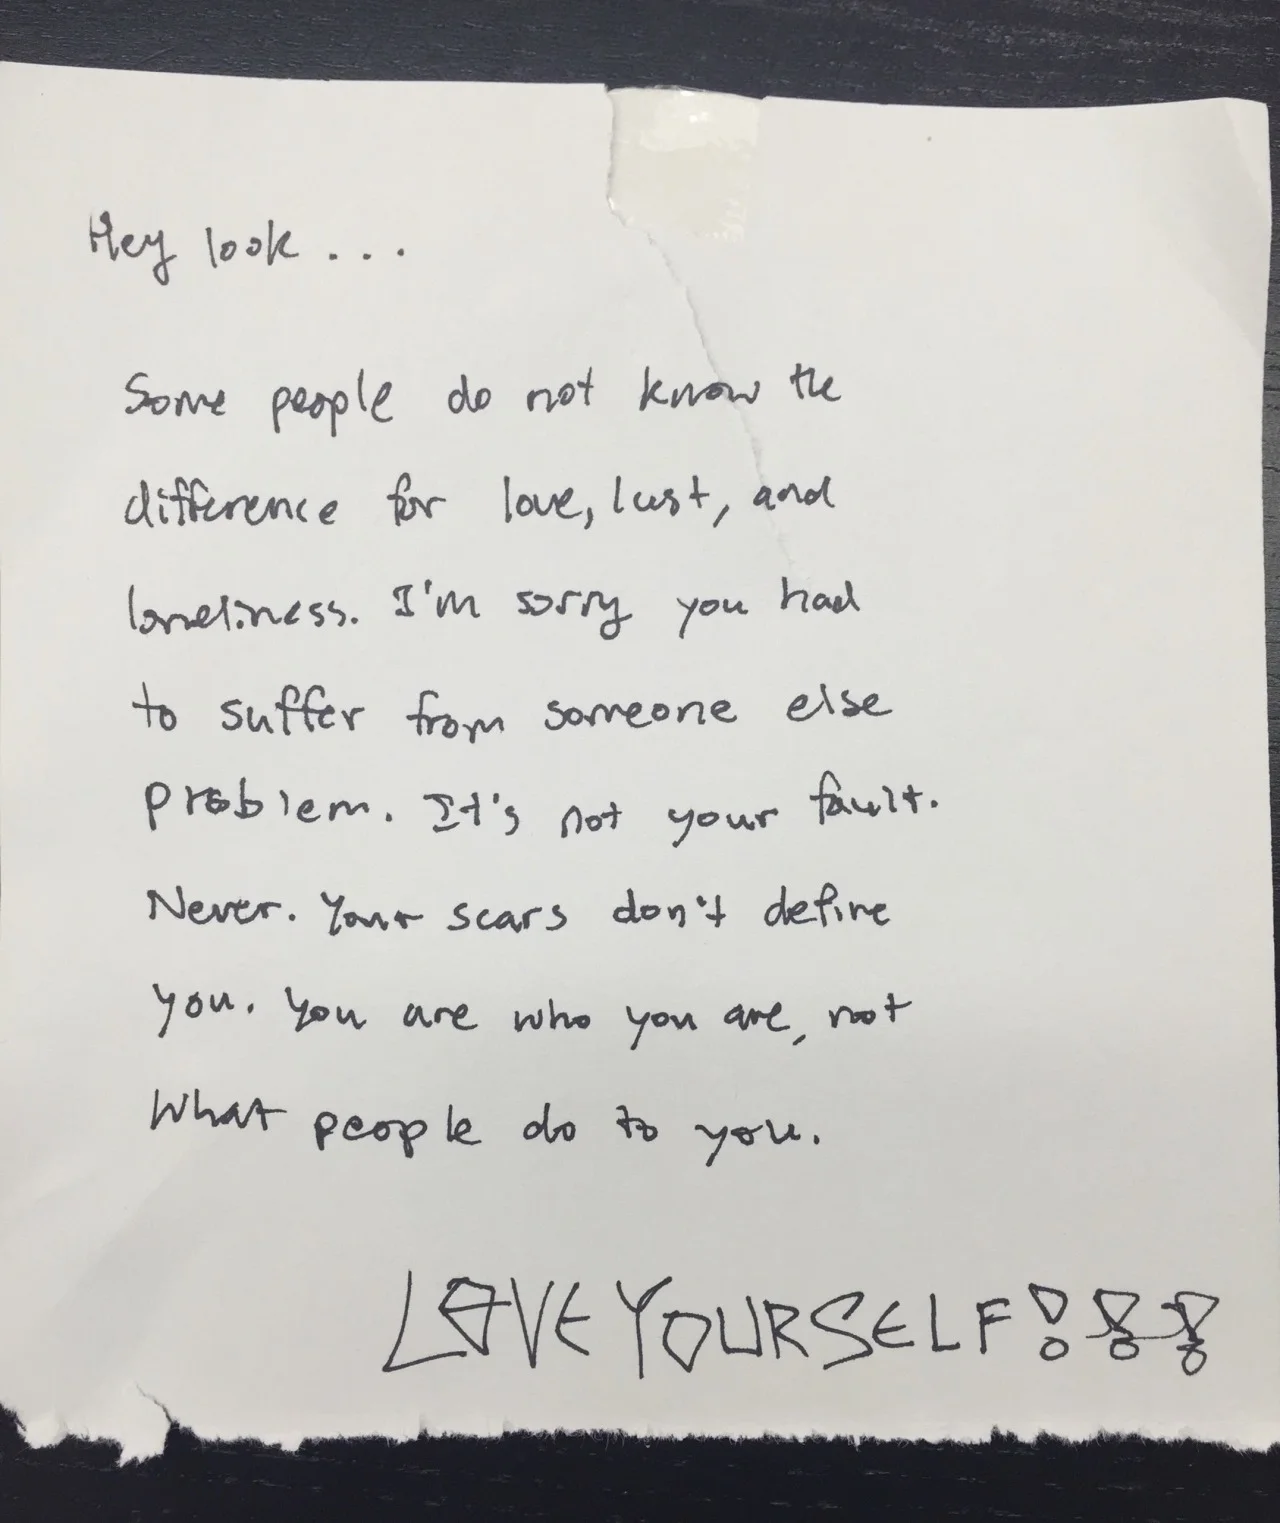 Hey look...
Some people do not know the
difference for love, lust, and
loneliness. I'm sorry you had
to suffer from someone else
problem. It's not your fault.
Never. Your scars don't define
you. You are who you are, not
what people do to you.
LOVE YOURSELF!!!